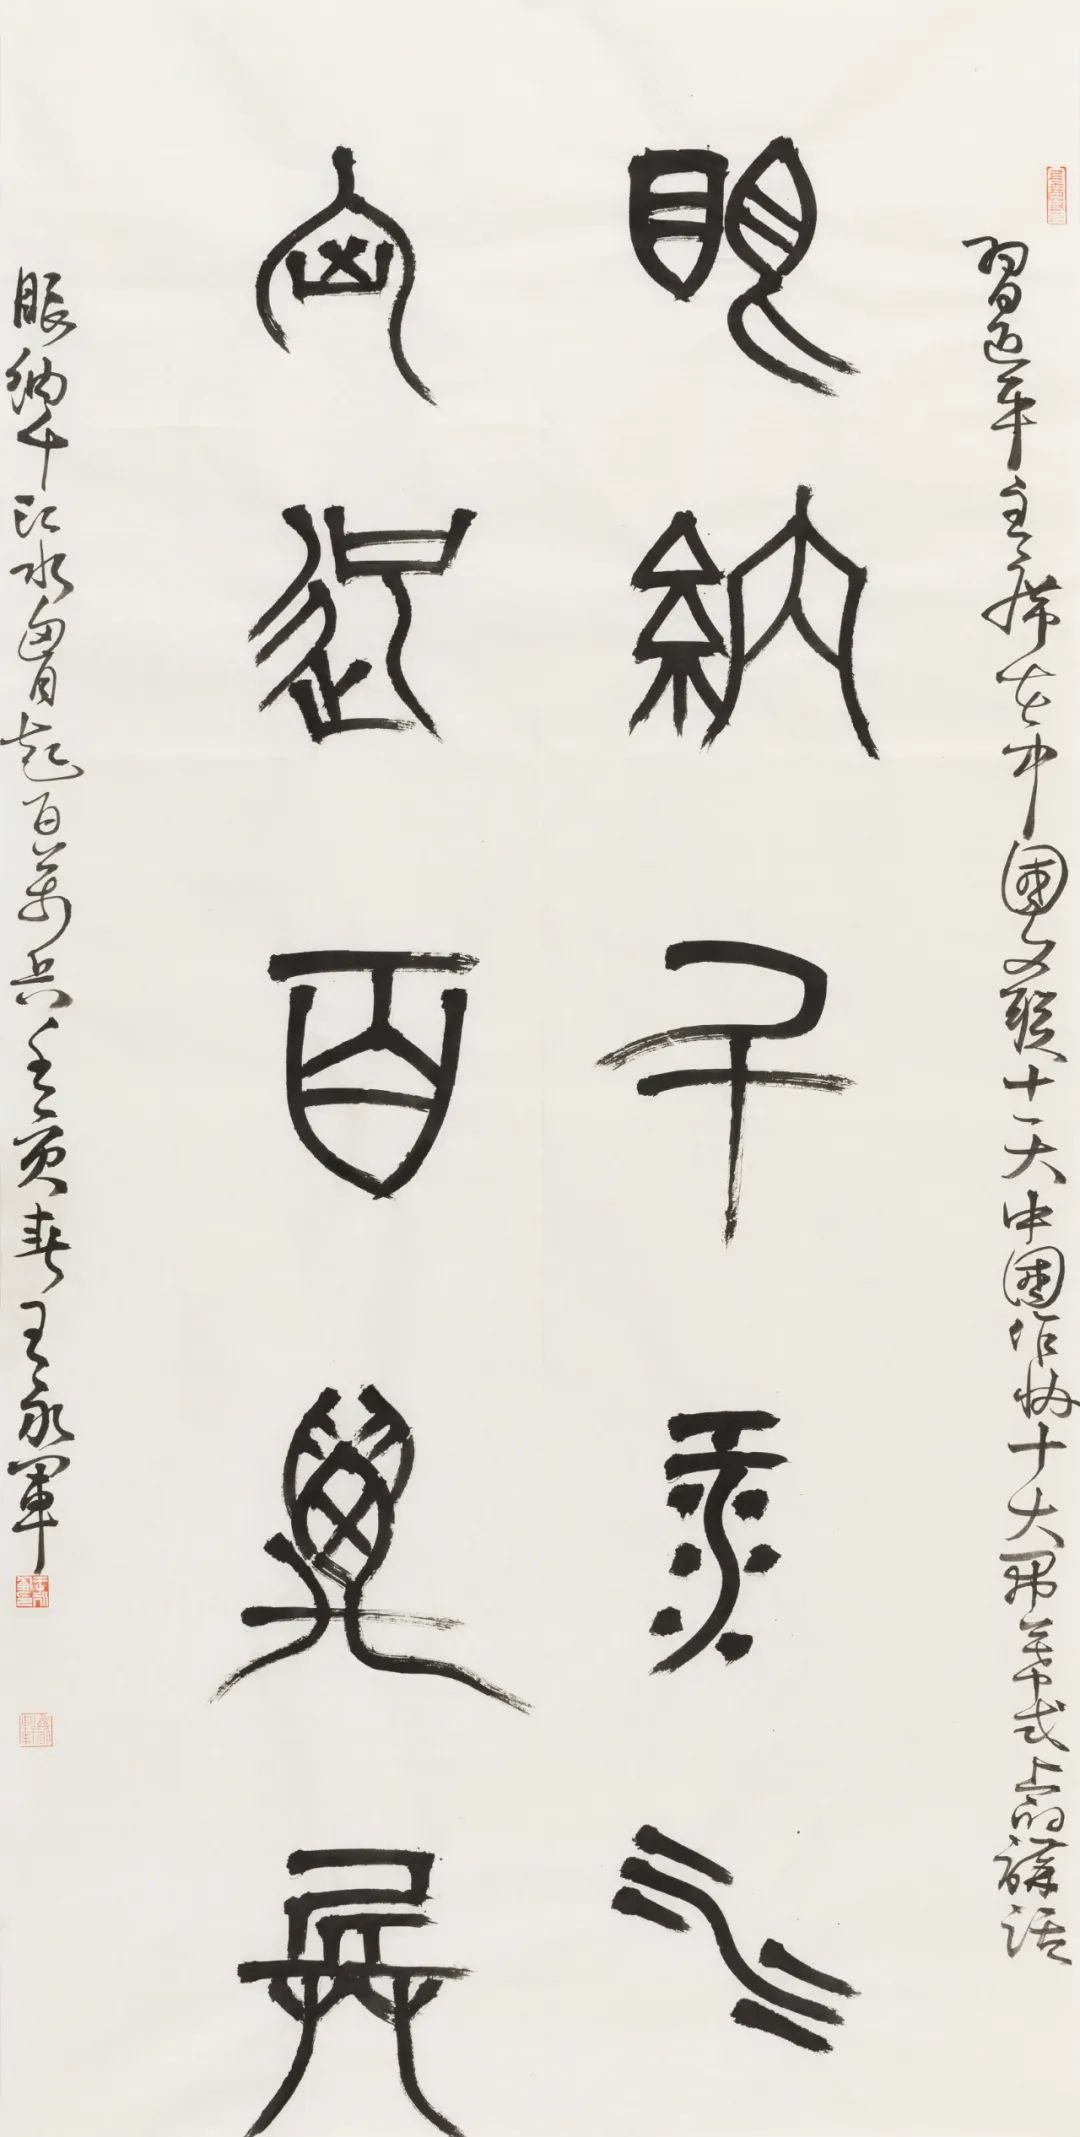 習近平主席在中國文聯十一大中國作協十大開幕式上的講話
眼納千江水
匈起百萬兵
眼納千江水胷起百萬兵壬寅春王永軍